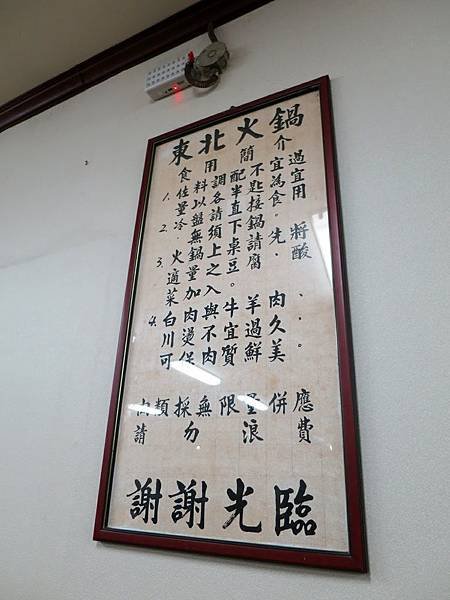 東北火鍋
食用簡介
1. 佐料調配不宜過
量以各半匙為宜
2. 冷盤請直接食用
無須下鍋。
3. 火鍋上桌請先將
適量之豆腐.酸
菜加入。
4. 白肉與牛羊肉.
川燙不宜過久.
可保肉質鮮美。
肉類採無限量供應
請勿浪費
謝謝光臨